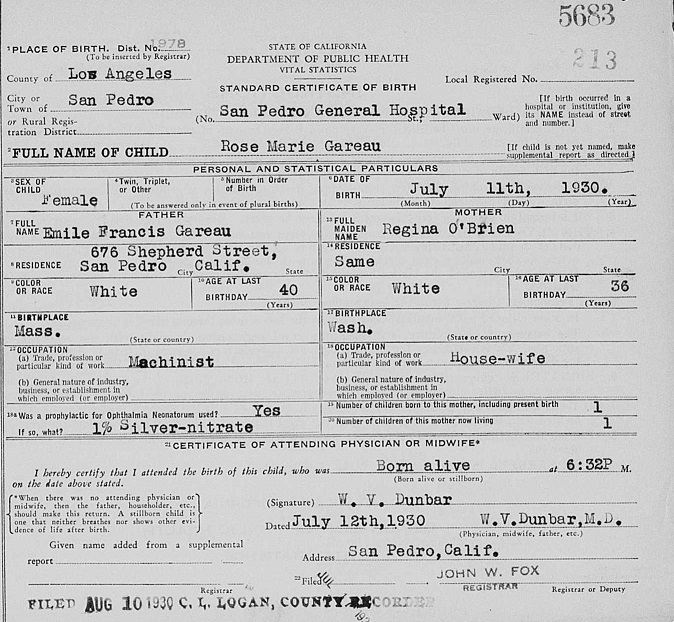 5683
¹PLACE OF BIRTH. Dist. No. 1978
(To be inserted by Registrar)
STATE OF CALIFORNIA
DEPARTMENT OF PUBLIC HEALTH
VITAL STATISTICS
STANDARD CERTIFICATE OF BIRTH
213
Local Registered No.
County of Los Angeles
City or Town of San Pedro
or Rural Registration District
(No. San Pedro General Hospital St.; Ward)
[If birth occurred in a
hospital or institution, give
its NAME instead of street
and number.]
²FULL NAME OF CHILD Rose Marie Gareau
[If child is not yet named, make
supplemental report as directed]
PERSONAL AND STATISTICAL PARTICULARS
³SEX OF CHILD Female
⁴Twin, Triplet, or Other
⁵Number in Order of Birth
(To be answered only in event of plural births)
⁶DATE OF BIRTH July 11th, 1930.
(Month) (Day) (Year)
FATHER
⁷FULL NAME Emile Francis Gareau
676 Shepherd Street,
⁸RESIDENCE San Pedro City Calif. State
⁹COLOR OR RACE White
¹⁰AGE AT LAST BIRTHDAY 40
(Years)
¹¹BIRTHPLACE
Mass.
(State or country)
¹²OCCUPATION
(a) Trade, profession or
particular kind of work Machinist
(b) General nature of industry,
business, or establishment in
which employed (or employer)
MOTHER
¹³FULL MAIDEN NAME Regina O'Brien
¹⁴RESIDENCE
Same
City State
¹⁵COLOR OR RACE White
¹⁶AGE AT LAST BIRTHDAY 36
(Years)
¹⁷BIRTHPLACE
Wash.
(State or country)
¹⁸OCCUPATION
(a) Trade, profession or
particular kind of work House-wife
(b) General nature of industry,
business, or establishment in
which employed (or employer)
¹⁸ᵃWas a prophylactic for Ophthalmia Neonatorum used? Yes
If so, what? 1% Silver-nitrate
¹⁹Number of children born to this mother, including present birth 1
²⁰Number of children of this mother now living 1
²¹CERTIFICATE OF ATTENDING PHYSICIAN OR MIDWIFE*
I hereby certify that I attended the birth of this child, who was Born alive at 6:32P M.
(Born alive or stillborn)
on the date above stated.
*When there was no attending physician or
midwife, then the father, householder, etc.,
should make this return. A stillborn child is
one that neither breathes nor shows other evi-
dence of life after birth.
(Signature) W. V. Dunbar
Dated July 12th,1930 W.V.Dunbar,M.D.
(Physician, midwife, father, etc.)
Given name added from a supplemental
report
Registrar
Address San Pedro,Calif.
²²Filed JUL
JOHN W. FOX
REGISTRAR
Registrar or Deputy
FILED AUG 10 1930 C. L. LOGAN, COUNTY RECORDER